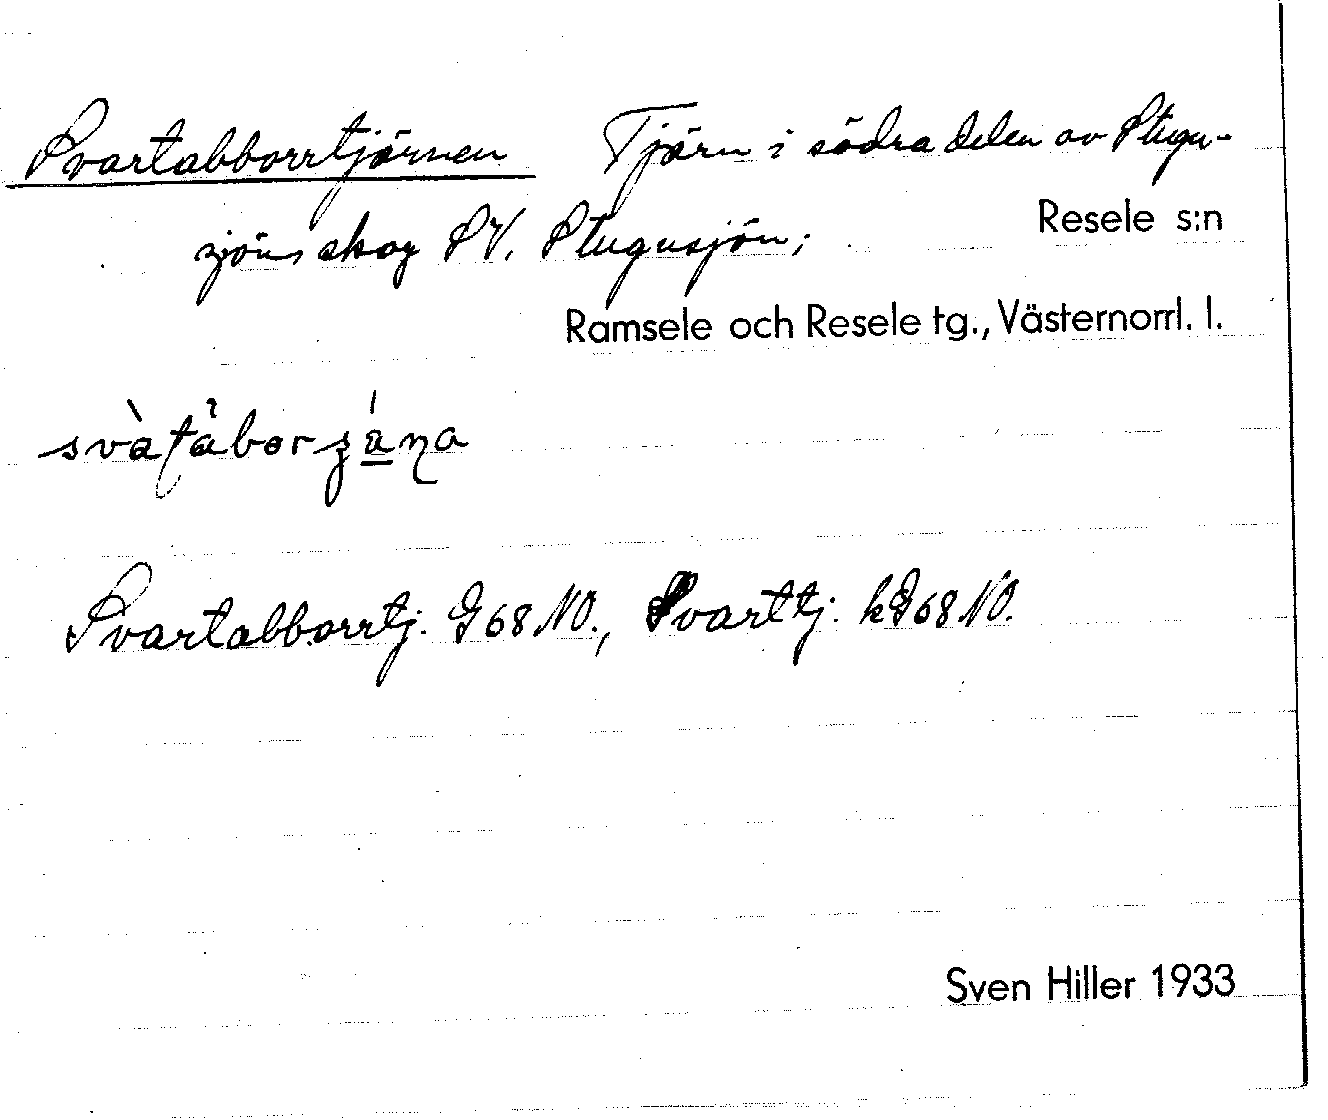 Svartabborrtjärnen Tjärn i södra delen av Stugu-
Resele s:n
sjöns skog SV. Stugusjön;
Ramsele och Resele tg., Västernorrl. l.
Svartabborrtj. G68NO., Svarttj. kG68NO.
Sven Hiller 1933